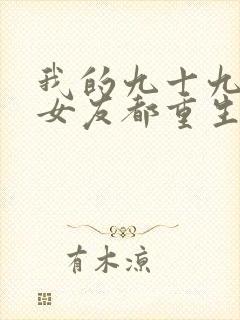 我的九十九
女友都重生
有木凉